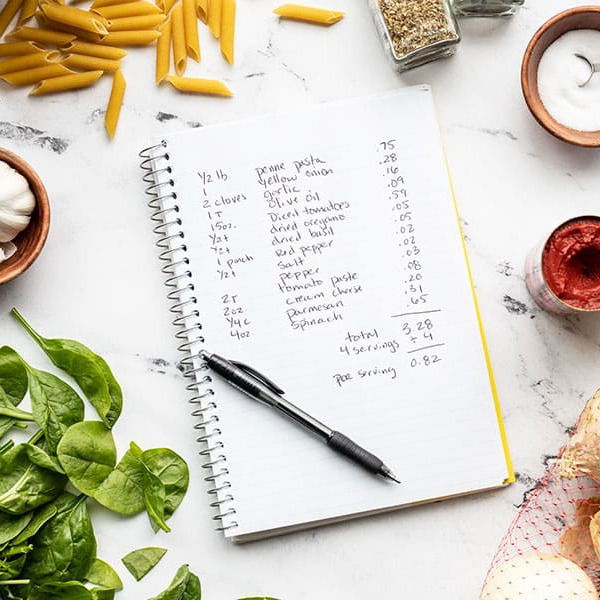 1/2 lb penne pasta .75
1 yellow onion .28
2 cloves garlic .16
1 T olive oil .09
15oz. Diced tomatoes .59
1/2 t dried oregano .05
1/2 t dried basil .05
1 pinch Red pepper .02
1/2 t salt .02
pepper .03
2T tomato paste .08
2oz cream cheese .20
1/4 c parmesan .31
4oz spinach .65
total 3.28
4 servings ÷ 4
per serving 0.82